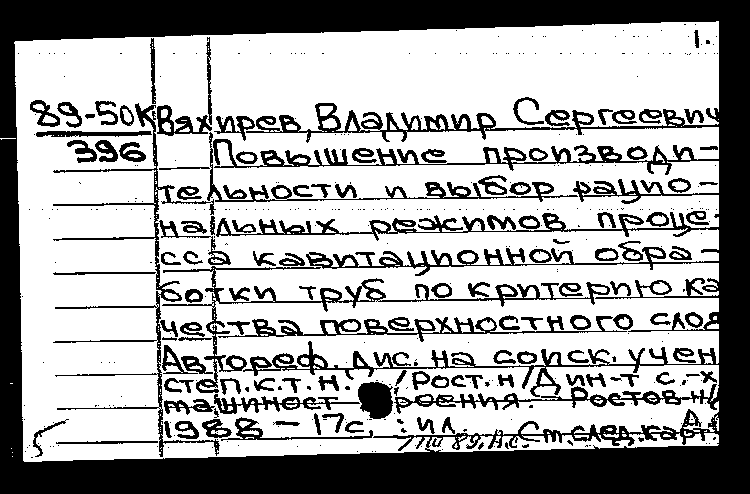 1.
89-50К Вяхирев, Владимир Сергеевич
396 Повышение производи-
тельности и выбор рацио-
нальных режимов проце-
сса кавитационной обра-
ботки труб по критерию ка
чества поверхностного слоя
Автореф. дис. на соиск. учен
степ. к.т.н. /Рост. н/Д ин-т с.-х
машиност роения. Ростов-н/
Д
1988 - 17с. : ил. См. след. карт.
5